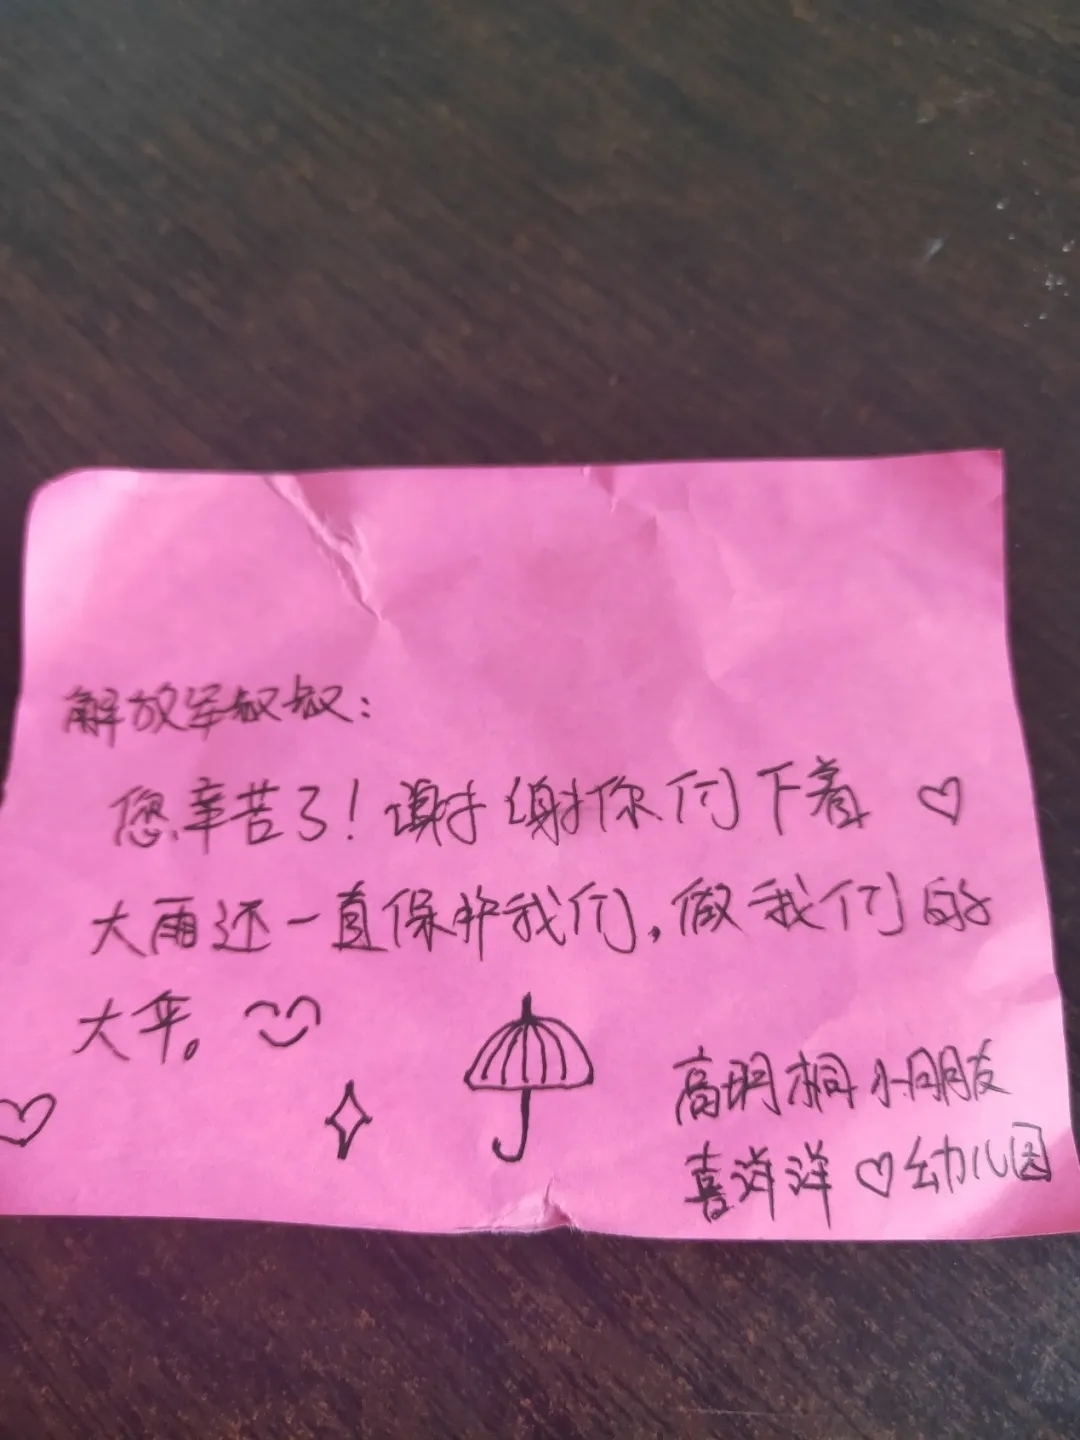 解放军叔叔：
您辛苦了！谢谢你们下着
大雨还一直保护我们，做我们的
大伞。
高玥桐小朋友
喜洋洋幼儿园